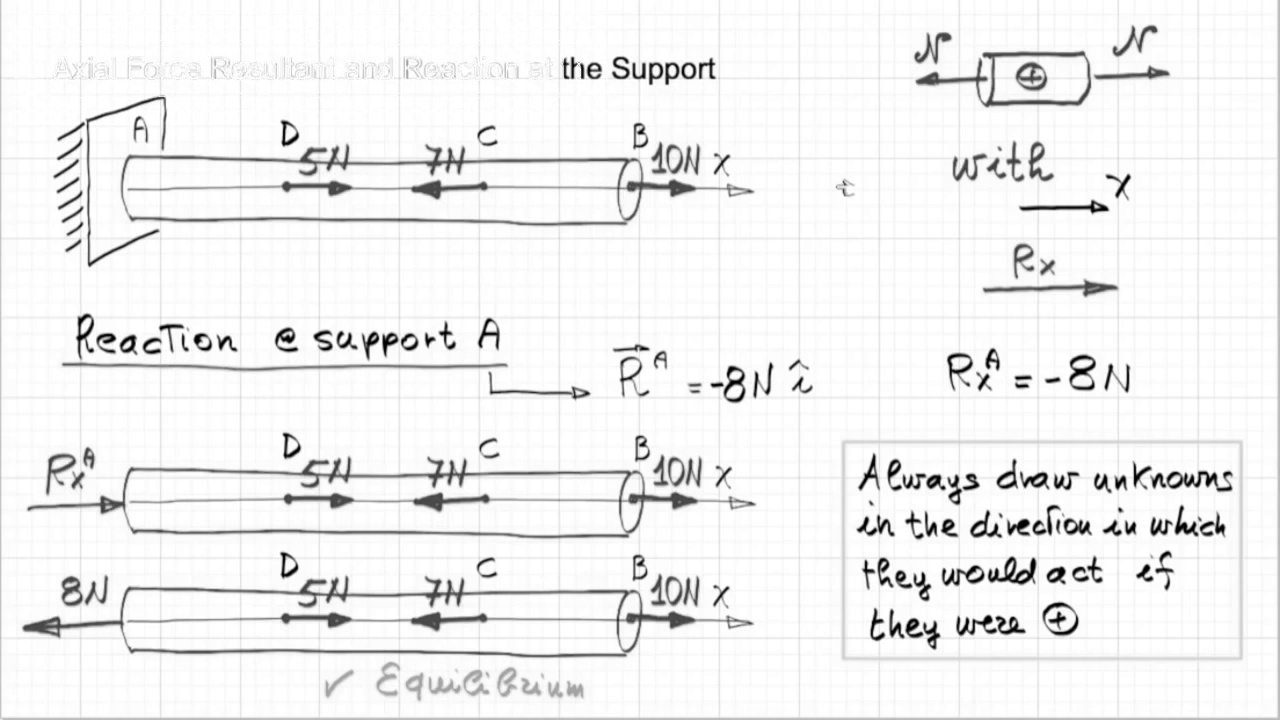 Axial Force Resultant and Reaction at the Support
N N
A D 5N 7N C B 10N x
with
x
Rx
Reaction @ support A
R A = -8N î
Rx A = -8N
Rx A D 5N 7N C B 10N x
8N D 5N 7N C B 10N x
✓ Equilibrium
Always draw unknowns
in the direction in which
they would act if
they were ⊕